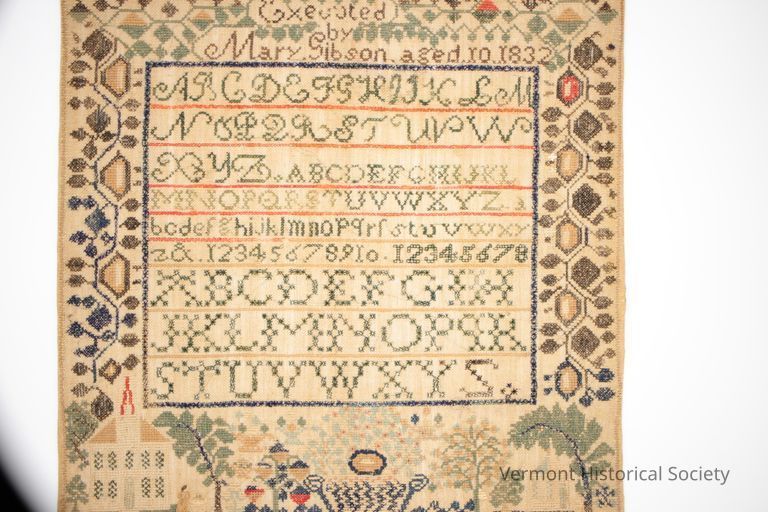 Executed
by
Mary Gibson aged 10 1832
A B C D E F G H I J K L M
N O P Q R S T U V W
X Y Z . A B C D E F G H I J K L
M N O P Q R S T U V W X Y Z a
b c d e f g h i j k l m n o p q r ſ s t u v w x y
z & . 1 2 3 4 5 6 7 8 9 10 . 1 2 3 4 5 6 7 8
A B C D E F G I H
J K L M N O P Q R
S T U V W X Y Z .
Vermont Historical Society